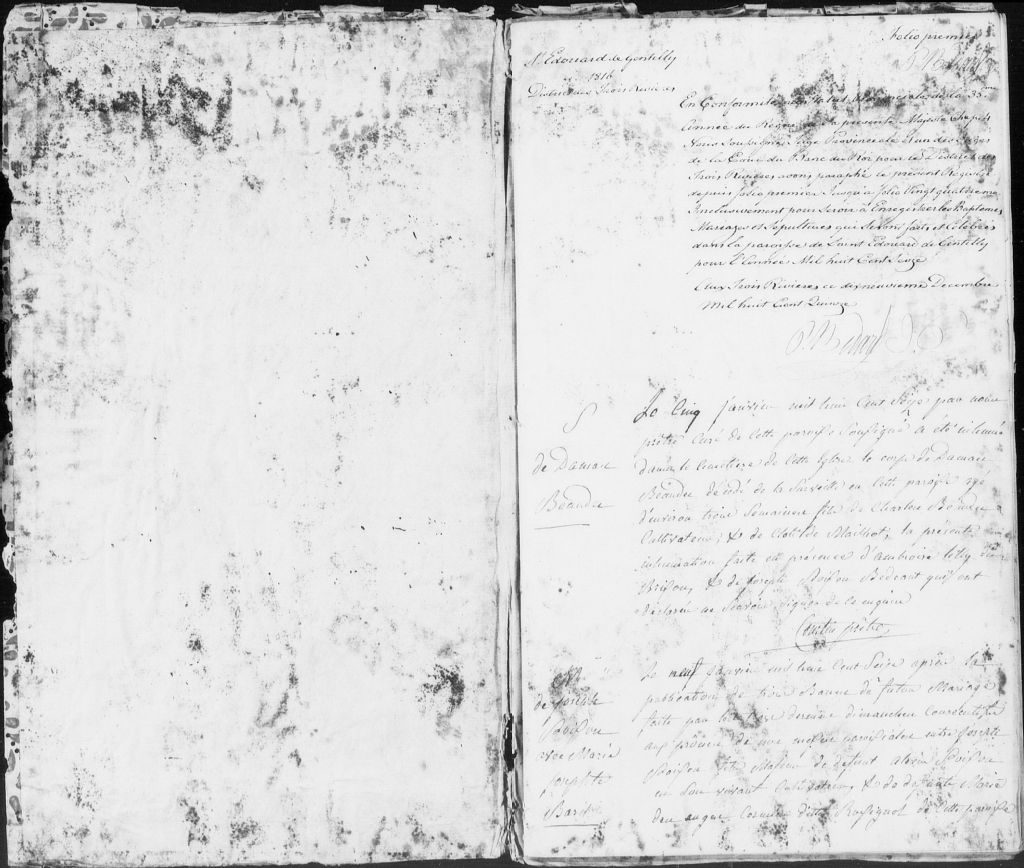 folio premier
St Edouard de Gentilly
1816
District des Trois Rivieres
En Conformité de la 35me
Année du Règne de sa presente Majesté
Nous Soussigné Juge Provincial et un des Juges
de la Cour du Banc du Roi pour le District des
Trois Rivieres avons paraphé le present Registre
depuis folio premier Jusqu'a folio Vingt quatrieme
Inclusivement pour servir à Enregistrer les Baptemes
Mariages et Sepultures qui seront faits et Célébrés
dans la paroisse de Saint Edouard de Gentilly
pour l'Année Mil huit Cent Seize
Aux Trois Rivieres ce dixneuvieme Decembre
Mil huit Cent Quinze
S
de Damase
Beaudet
Le Cinq janvier mil huit Cent Seize par nous
prêtre Curé de Cette paroisse Soussigné a été inhumé
dans le Cimetiere de Cette Eglise le corps de Damase
Beaudet décédé de la surveille en Cette paroisse agé
d'environ trois Semaines fils de Charles Beaudet
Cultivateur, & de Clotilde Mailhot, la présente
inhumation faite en présence d'Ambroise
Brisson, & de Joseph Poisson Bedeaut qui ont
déclaré ne Savoir Signer de ce enquis
prêtre
M
de Joseph
Poisson
avec Marie
Josephte
Baril
Le neuf Janvier mil huit Cent Seize après la
publication de trois Bancs de futur Mariage
faite par trois dimanches Consécutifs
aux prônes de nos messes paroissiales entre Joseph
Poisson fils Majeur de defunt Alexis Poisson
en son vivant Cultivateur, & de défunte Marie
dite Rossignol de Cette paroisse